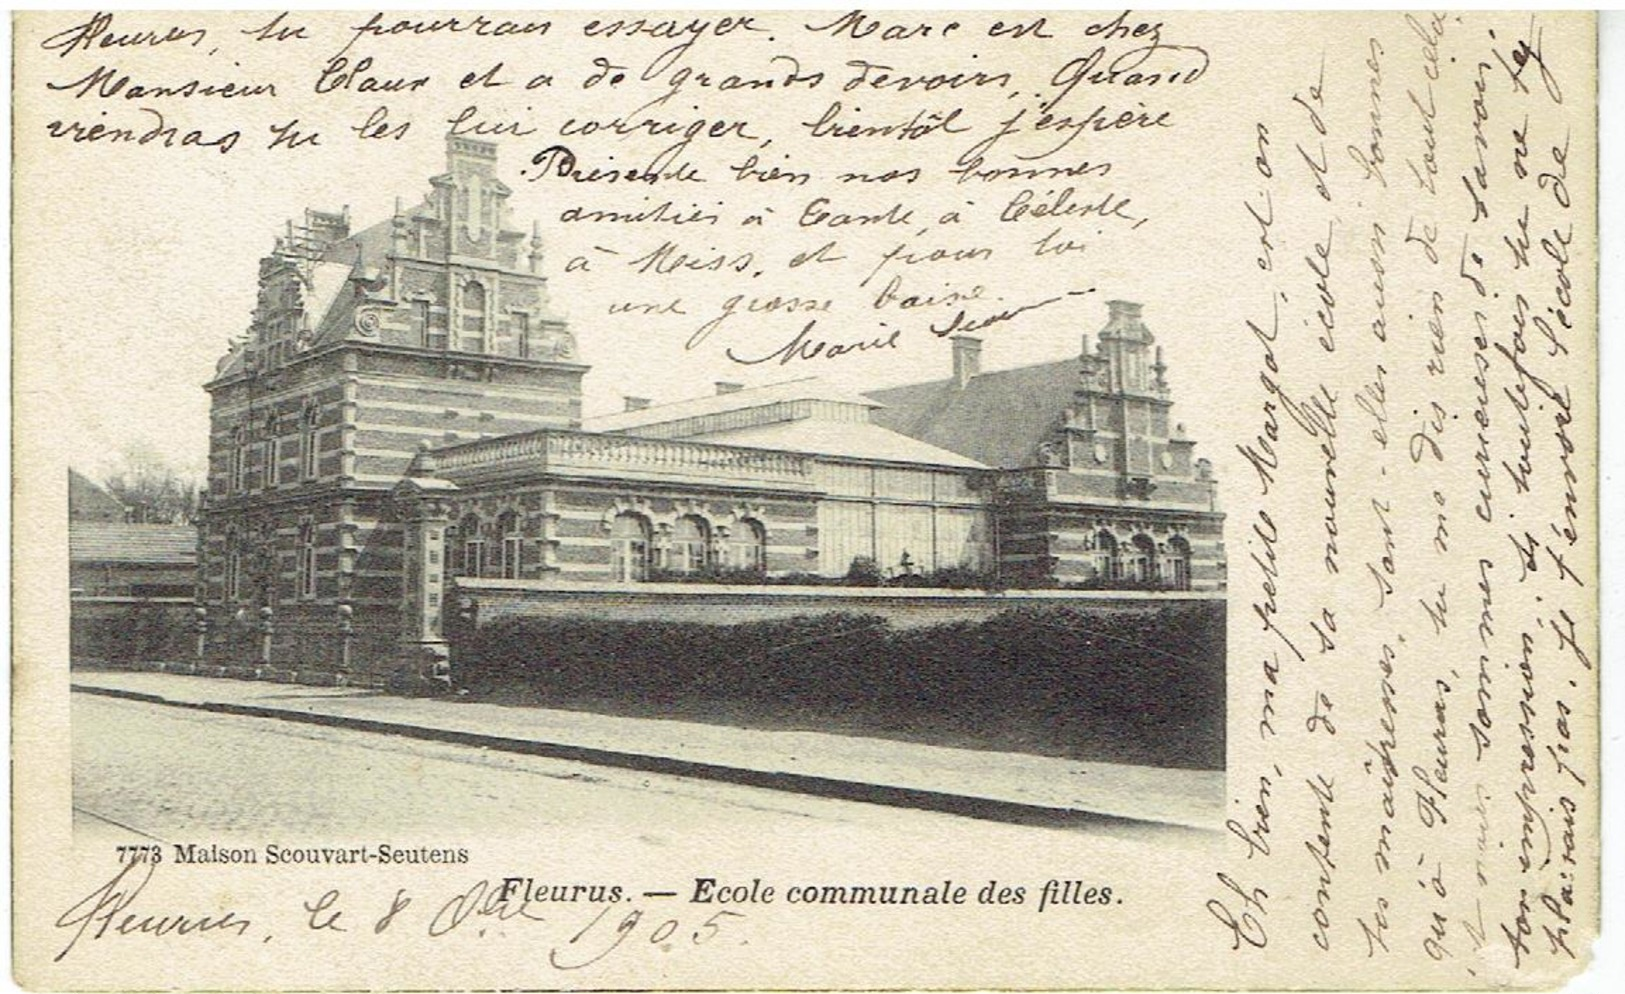 Fleurus, le 8 8bre 1905.
Eh bien, ma petite Margot, est on
contente de sa nouvelle école et de
ses maîtresses, sont-elles aussi bonnes
qu'à Fleurus, tu me dis rien de tout cela
nous sommes curieuses de savoir
ton impression; si toutefois tu ne t'y
plaisais pas. Je t'envoie l'école de
Fleurus, tu pourrais essayer. Marc est chez
Monsieur Claux et a de grands devoirs, Quand
viendras tu les lui corriger, bientôt j'espère
Présente bien nos bonnes
amitiés à Tante, à Céleste,
à Miss, et pour toi
une grosse baise.
Marie
7773 Maison Scouvart-Seutens
Fleurus. — Ecole communale des filles.